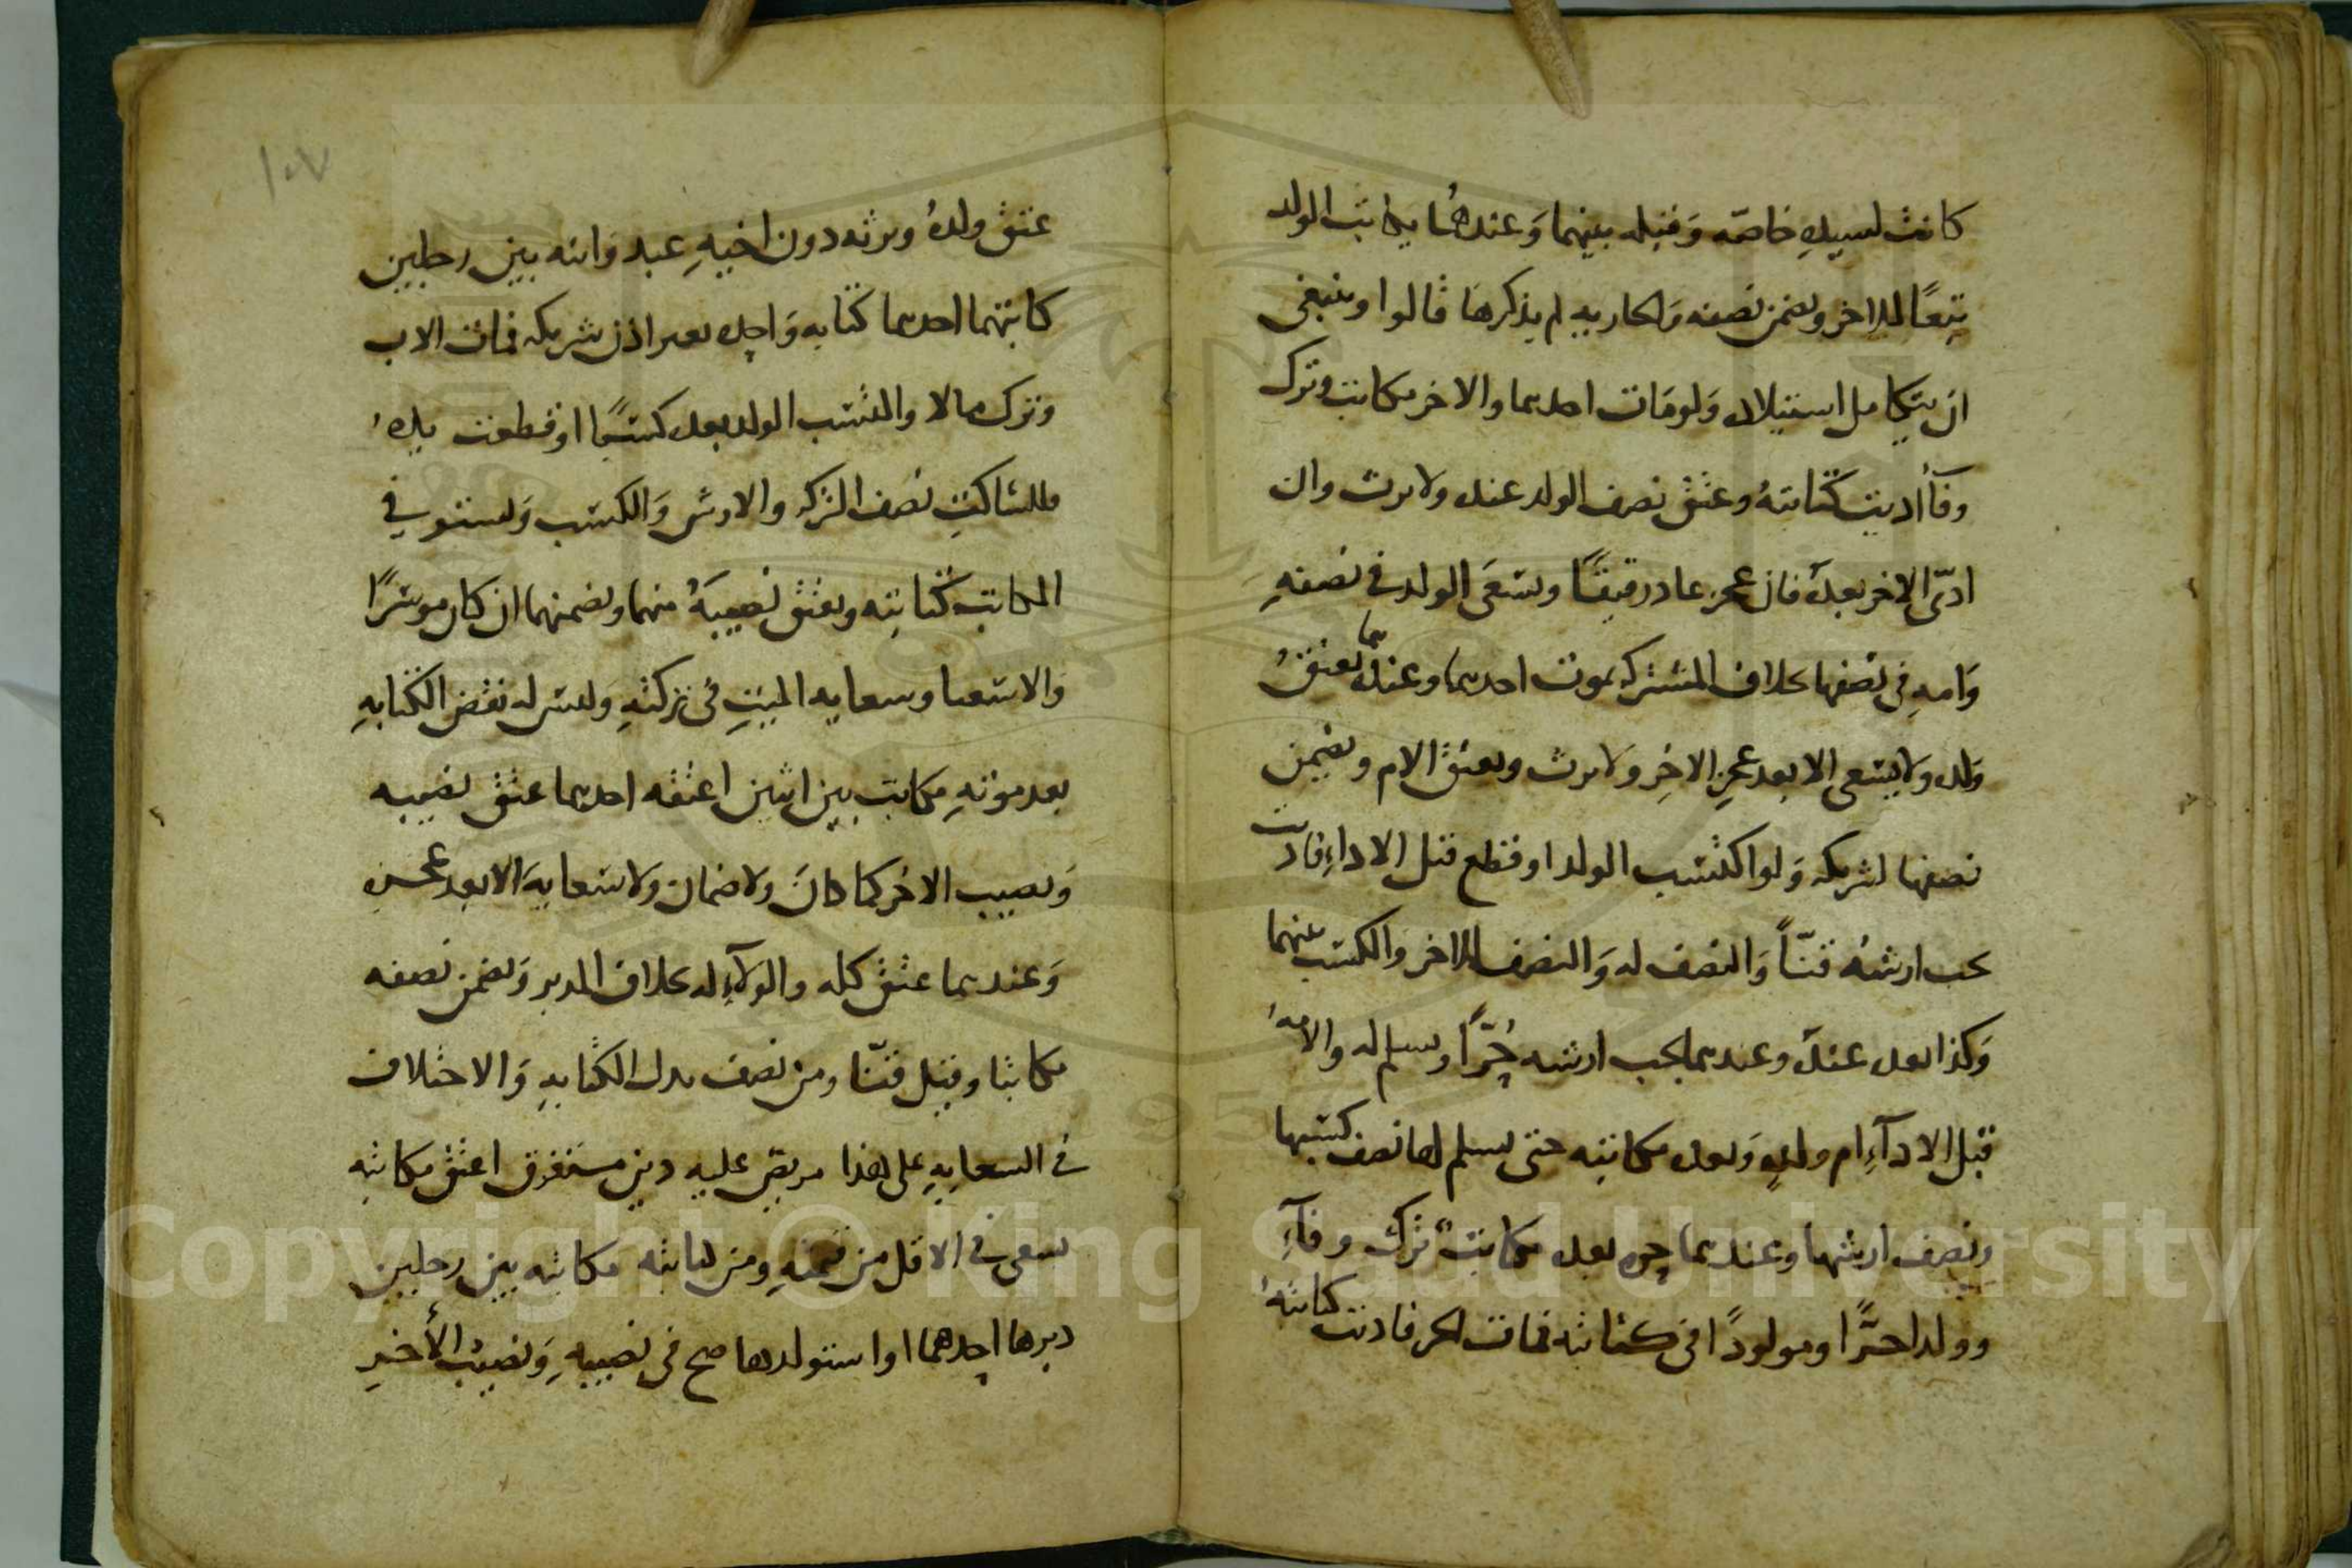 كانت لسيده خاصة وقبله بينهما وعندهما يكاتب الولد
تبعًا للاخر ويضمن نصفه والجاريه لم يذكرها قالوا وينبغي
ان يتكامل استيلاد ولو مات احدهما والاخر مكاتب وترك
وفآ أديت كتابته وعتق نصف الولد عنده ولا يرث وان
ادّى الاخر بعده فان عجز عاد رقيقًا ويسعى الولد في نصفه
وامه في نصفها بخلاف المشترك بموت احدهما وعندهما يعتق
ولده ولا يسعى الا بعد عجز الاخر ولا يرث ويعتق الام ويضمن
نصفها لشريكه ولو اكتسب الولد او قطع قبل الاداء فاديت
يجب ارشه قنّاً والنصف له والنصف للاخر والكسب بينهما
وكذا بعده عنده وعندهما يجب ارشه حُرّاً ويسلم له والامة
قبل الادآء ام ولد وبعده مكاتبه حتى يسلم لها نصف كسبها
ونصف ارشها وعندهما حره بعده مكاتب ترك وفآء
وولدا حرًّا ومولودًا في كتابته فمات الحر فاديت كتابتهُ
١٠٧
عتق ولدهُ وورثه دون اخيهِ عبد وابنه بين رجلين
كاتبهما احدهما كتابه واحده بغير اذن شريكه فمات الاب
وترك مالا واكتسب الولد بعده كسبًا او قطعت يده
فللساكت نصف التركه والارش والكسب ويستوفي
المكاتب كتابته ويعتق نصيبهُ منهما ويضمنهما ان كان موسرًا
والا استسعيا وسعايه الميت في تركته وليس له نقض الكتابهِ
بعد موته مكاتب بين اثنين اعتقه احدهما عتق نصيبه
ونصيب الاخر كما كان ولا ضمان ولا سعايه الا بعد عجزه
وعندهما عتق كله والولآء له بخلاف المدبر ويضمن نصفه
مكاتبا وقيل قنّا ومن نصف بدل الكتابه والاختلاف
في السعايهِ على هذا مريض عليه دين مستغرق اعتق مكاتبه
سعى في الاقل من قيمته ومن كتابته مكاتبه بين رجلين
دبرها احدهما او استولدها صح في نصيبهِ ونصيب الأخر